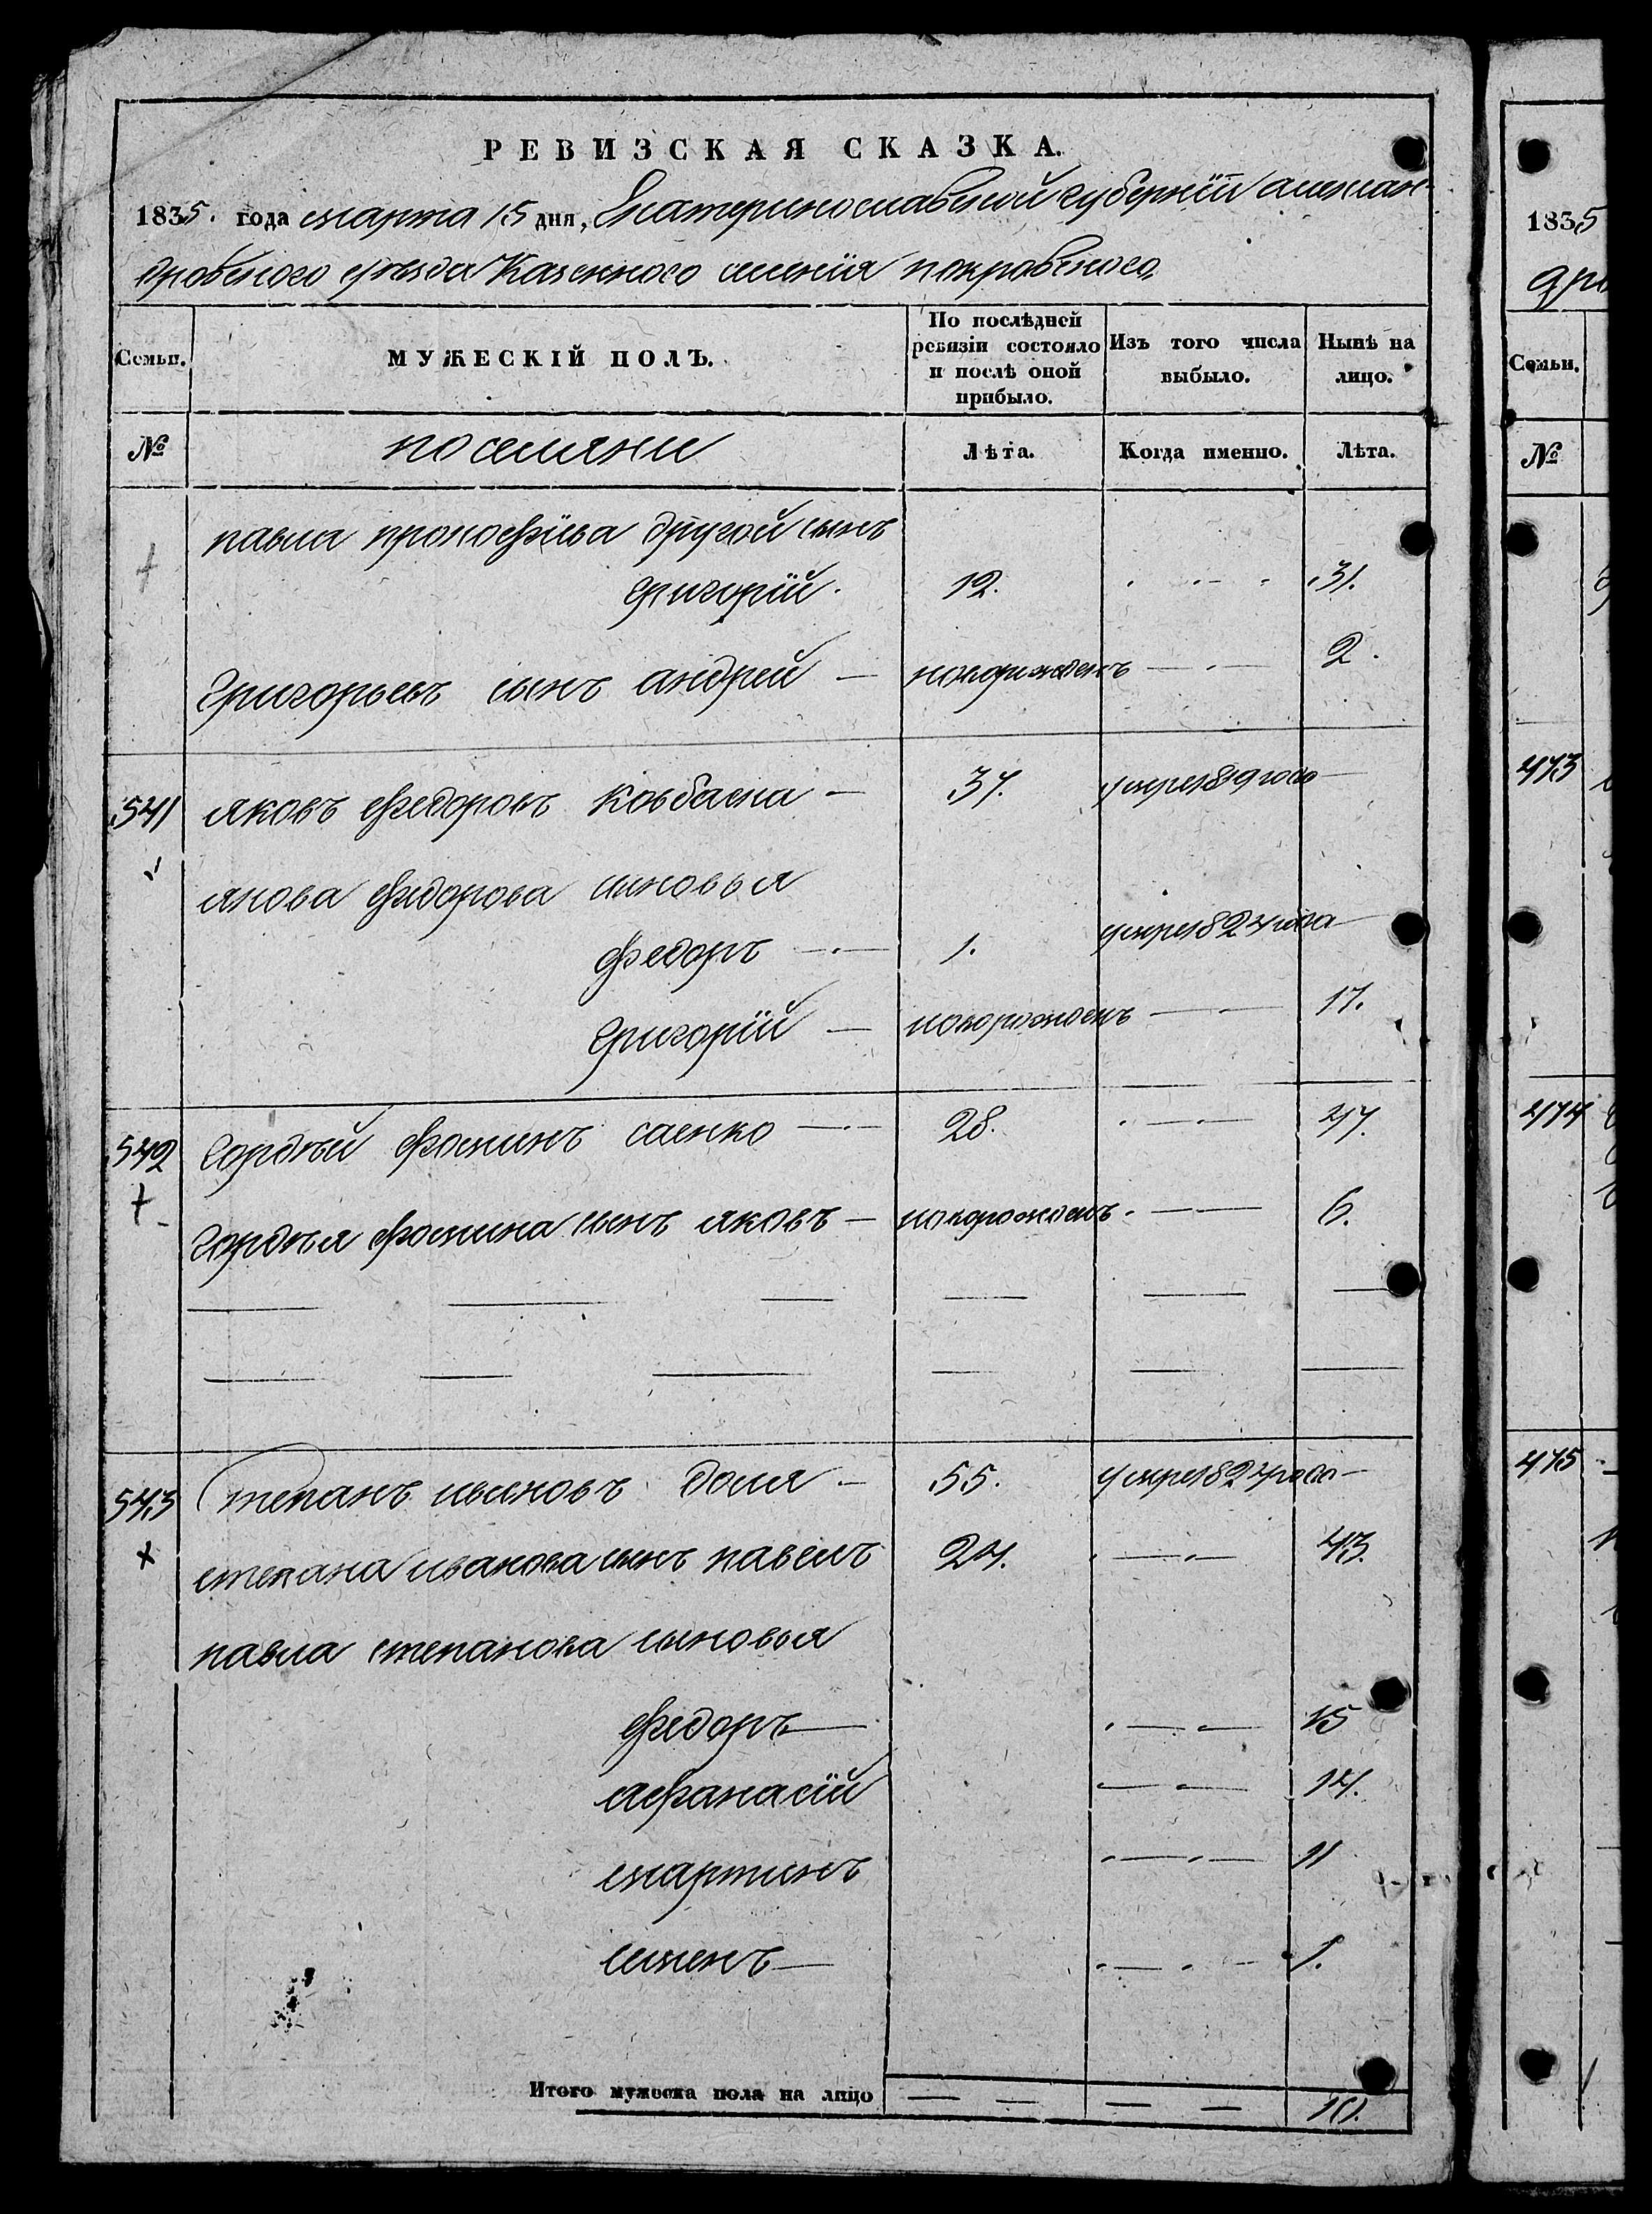 РЕВИЗСКАЯ СКАЗКА.
1835. года марта 15 дня, Екатеринославской губернїи алексан-
дровского уезда Казенного селенїя покровского
Семьи. МУЖЕСКІЙ ПОЛЪ. По послѣдней ревизіи состояло и послѣ оной прибыло. Изъ того числа выбыло. Нынѣ на лицо.
№ поселяне Лѣта. Когда именно. Лѣта.
павла прокофїева другой сынъ
григорїй. 12. 31.
Григорьевъ сынъ андрей — новорожденъ — 2.
541 яковъ федоровъ ковбаса — 37. умре 1819 года
якова федорова сыновья
федоръ — 1. умре 1827 года
Григорїй — новорожденъ — 17.
542 Гордѣй фоминъ саенко — 28. — 47.
Гордѣя фомина сынъ яковъ — новорожденъ — 6.
543 Степанъ ивановъ доля — 55. умре 1827 года
степана иванова сынъ павелъ 24. — 43.
павла степанова сыновья
федоръ — 15
афанасїй — 14.
мартинъ — 11
семенъ — 1.
Итого мужеска пола на лицо — — — — 10.
1835
дро
Семьи.
№
473
474
475